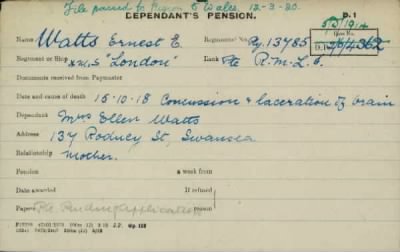 File passed to Region 6 Wales. 12-3-20.
DEPENDANT'S PENSION.
D.1
5D/1914
Name Watts Ernest E. Regimental No. Po. 13785 Case No.
D. 2M/4362
Regiment or Ship H.M.S "London" Rank Pte R.M.L.I.
Documents received from Paymaster
Date and cause of death 15-10-18 Concussion & laceration of brain
Dependant Mrs Ellen Watts
Address 137 Rodney St, Swansea
Relationship mother.
Pension a week from
Date awarded If refused
Papers Pte Pending application reason